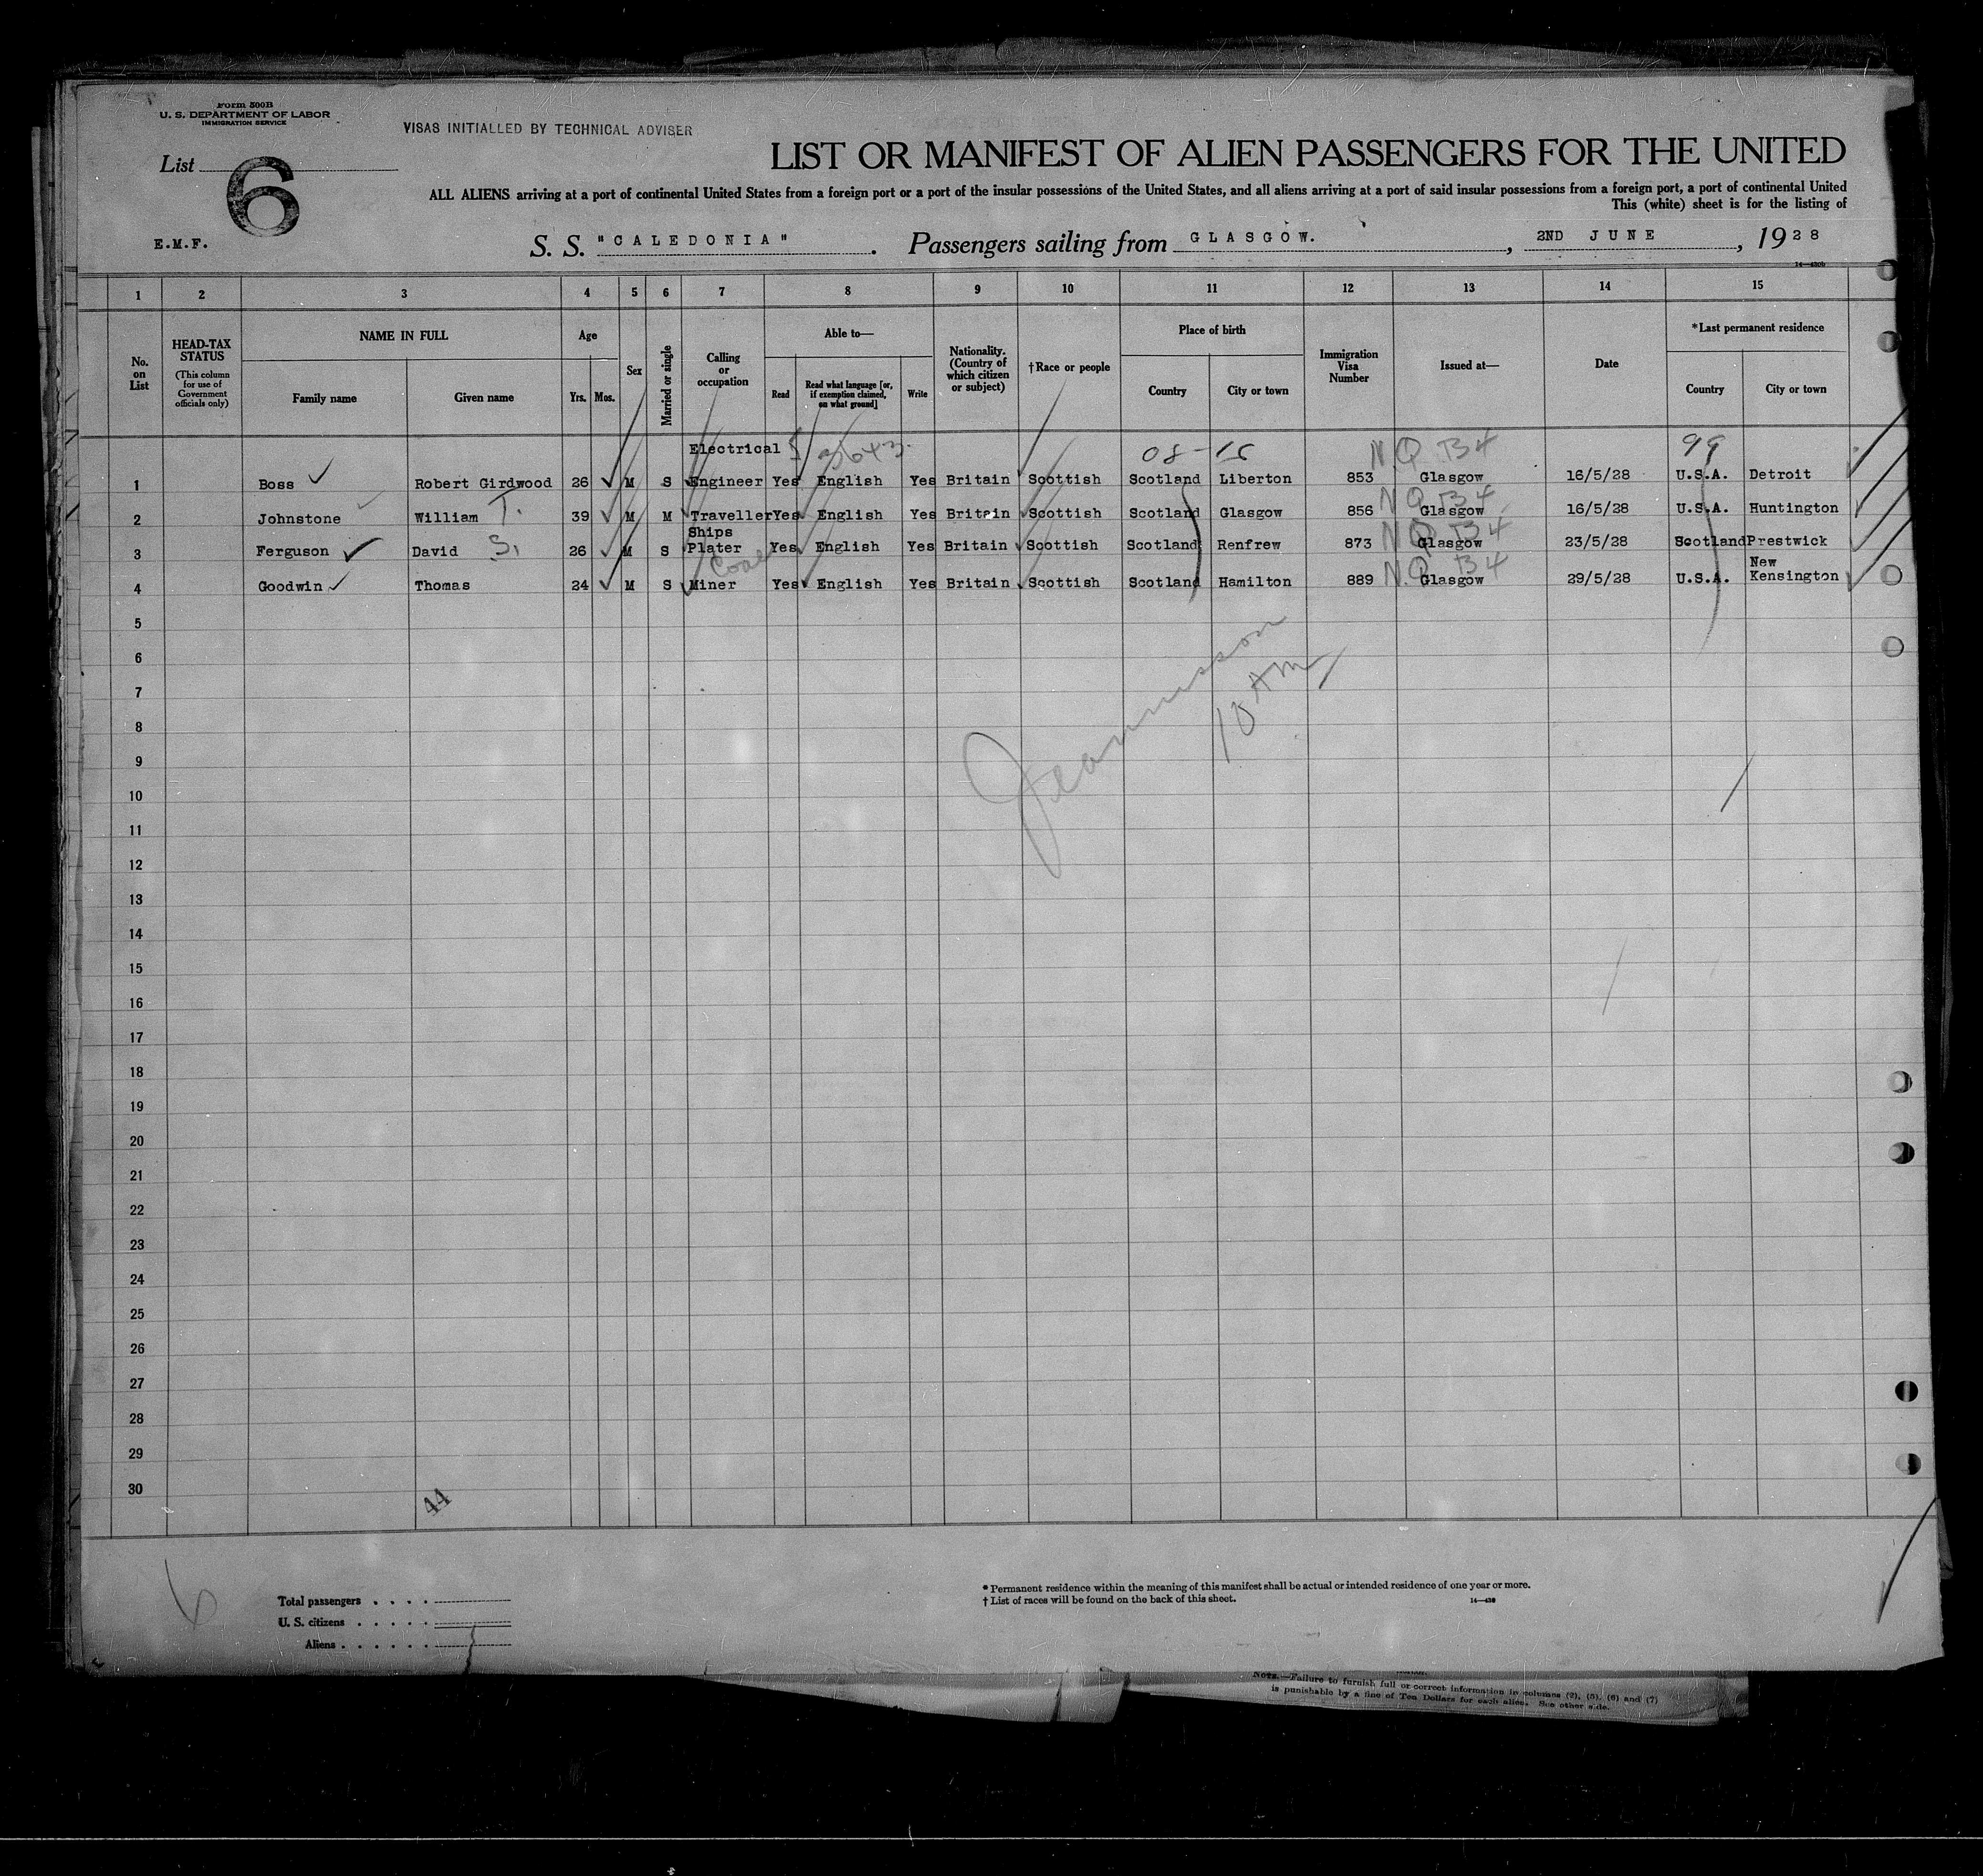 Form 500B
U. S. DEPARTMENT OF LABOR
IMMIGRATION SERVICE
VISAS INITIALLED BY TECHNICAL ADVISER
List 6
LIST OR MANIFEST OF ALIEN PASSENGERS FOR THE UNITED
ALL ALIENS arriving at a port of continental United States from a foreign port or a port of the insular possessions of the United States, and all aliens arriving at a port of said insular possessions from a foreign port, a port of continental United
This (white) sheet is for the listing of
E.M.F.
S. S. "CALEDONIA". Passengers sailing from GLASGOW., 2ND JUNE, 1928
1 2 3 4 5 6 7 8 9 10 11 12 13 14 15
No. on List
HEAD-TAX STATUS
(This column for use of Government officials only)
NAME IN FULL
Family name Given name
Age
Yrs. Mos.
Sex
Married or single
Calling or occupation
Able to—
Read
Read what language [or, if exemption claimed, on what ground]
Write
Nationality. (Country of which citizen or subject)
†Race or people
Place of birth
Country City or town
Immigration Visa Number
Issued at—
Date
*Last permanent residence
Country City or town
Electrical 08-15 N Q B4 99
1 Boss Robert Girdwood 26 M S Engineer Yes English Yes Britain Scottish Scotland Liberton 853 Glasgow 16/5/28 U.S.A. Detroit
N Q B4
2 Johnstone William T. 39 M M Traveller Yes English Yes Britain Scottish Scotland Glasgow 856 Glasgow 16/5/28 U.S.A. Huntington
Ships N Q B4
3 Ferguson David S. 26 M S Plater Yes English Yes Britain Scottish Scotland Renfrew 873 Glasgow 23/5/28 Scotland Prestwick
Coal N Q B4 New
4 Goodwin Thomas 24 M S Miner Yes English Yes Britain Scottish Scotland Hamilton 889 Glasgow 29/5/28 U.S.A. Kensington
5
6
7
8
9
10
11
12
13
14
15
16
17
18
19
20
21
22
23
24
25
26
27
28
29
30
10 AM
44
6
Total passengers
U. S. citizens
Aliens
* Permanent residence within the meaning of this manifest shall be actual or intended residence of one year or more.
† List of races will be found on the back of this sheet.
14—430
NOTE.—Failure to furnish full or correct information in columns (2), (5), (6) and (7)
is punishable by a fine of Ten Dollars for each alien. See other side.